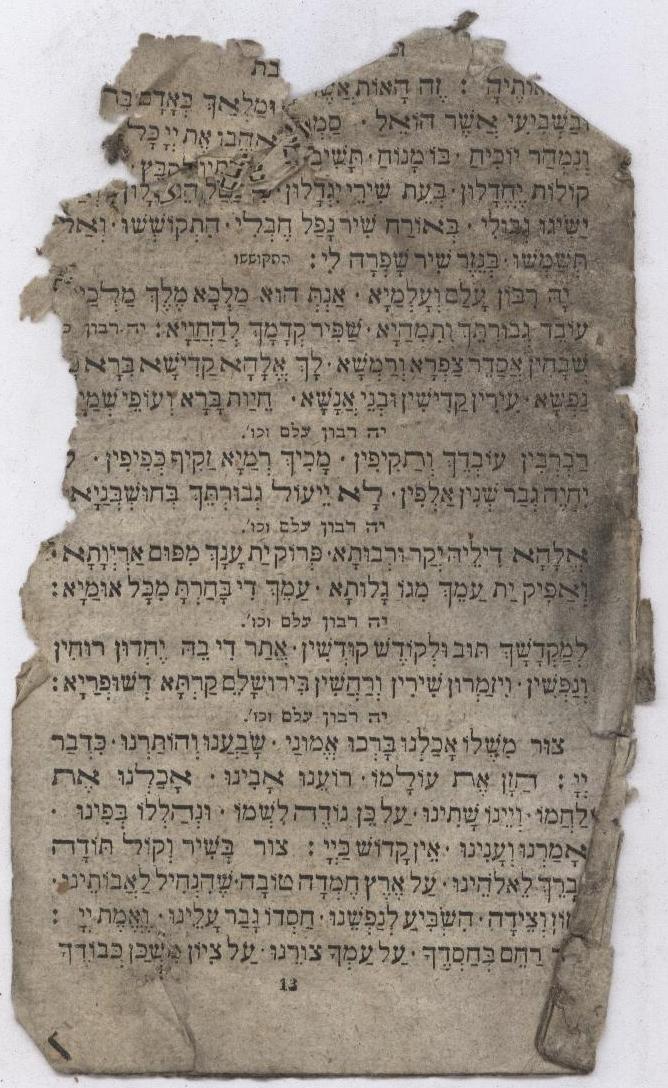 בת
אותיה : זֶה הָאוֹת אֲשֶׁר וּמַלְאַךְ בְּאָדָם בַּר
וּבַשְּׁבִיעִי אֲשֶׁר הוֹאֵל · אֶת יְיָ כָּל
וְנִמְהַר יוֹכִיחַ · בּוֹ מָנוֹחַ · תָּשִׁיב
קוֹלוֹת יֶחְדָּלוּן · בְּעֵת שִׁירַי יִגְדָּלוּן ·
יַשִּׂיגוּ גְבוּלִי · בְּאוֹרַח שִׁיר נָפַל חֶבְלִי · הִתְקוֹשְׁשׁוּ · וְאַל
תְּשַׁמְּשׁוּ · בְּנֵזֶר שִׁיר שָׁפְרָה לִי : התקוששו
יָהּ רִבּוֹן עָלַם וְעָלְמַיָא · אַנְתְּ הוּא מַלְכָּא מֶלֶךְ מַלְכַיָא
עוֹבַד גְּבוּרְתֵּךְ וְתִמְהַיָא · שַׁפִּיר קֳדָמָךְ לְהַחֲוָיָא : יה רבון
שְׁבָחִין אֲסַדֵּר צַפְרָא וְרַמְשָׁא · לָךְ אֱלָהָא קַדִּישָׁא בְּרָא
נַפְשָׁא · עִירִין קַדִּישִׁין וּבְנֵי אֲנָשָׁא · חֵיוַת בָּרָא וְעוֹפֵי שְׁמַיָא
יה רבון עלם וכו'.
רַבְרְבִין עוֹבְדֵךְ וְתַקִּיפִין · מָכִיךְ רְמַיָא זַקִּיף כְּפִיפִין ·
יִחְיֶה גְבַר שְׁנִין אַלְפִין · לָא יֵיעוֹל גְּבוּרְתֵּךְ בְּחוּשְׁבְּנַיָא
יה רבון עלם וכו'.
אֱלָהָא דִילֵיהּ יְקַר וּרְבוּתָא · פְּרוֹק יַת עָנָךְ מִפּוּם אַרְיְוָתָא
וְאַפִּיק יַת עַמֵּךְ מִגּוֹ גָלוּתָא · עַמֵּךְ דִּי בְחַרְתְּ מִכָּל אוּמַיָא :
יה רבון עלם וכו'.
לְמַקְדָּשֵׁךְ תּוּב וּלְקוֹדֶשׁ קוּדְשִׁין · אֲתַר דִּי בֵהּ יֶחְדוּן רוּחִין
וְנַפְשִׁין · וִיזַמְּרוּן שִׁירִין וְרַחֲשִׁין בִּירוּשְׁלֵם קַרְתָּא דְשׁוּפְרַיָא :
יה רבון עלם וכו'.
צוּר מִשֶּׁלּוֹ אָכַלְנוּ בָּרְכוּ אֱמוּנַי · שָׂבַעְנוּ וְהוֹתַרְנוּ · כִּדְבַר
יְיָ : הַזָּן אֶת עוֹלָמוֹ · רוֹעֵנוּ אָבִינוּ · אָכַלְנוּ אֶת
לַחְמוֹ · וְיֵינוֹ שָׁתִינוּ · עַל כֵּן נוֹדֶה לִשְׁמוֹ · וּנְהַלְלוֹ בְּפִינוּ ·
אָמַרְנוּ וְעָנִינוּ · אֵין קָדוֹשׁ כַּיְיָ : צור בְּשִׁיר וְקוֹל תּוֹדָה
נְבָרֵךְ לֵאלֹהֵינוּ · עַל אֶרֶץ חֶמְדָּה טוֹבָה · שֶׁהִנְחִיל לַאֲבוֹתֵינוּ ·
מָזוֹן וְצֵידָה · הִשְׂבִּיעַ לְנַפְשֵׁנוּ · חַסְדּוֹ גָּבַר עָלֵינוּ · וֶאֱמֶת יְיָ :
רַחֵם בְּחַסְדֶּךָ · עַל עַמְּךָ צוּרֵנוּ · עַל צִיּוֹן מִשְׁכַּן כְּבוֹדֶךָ
13